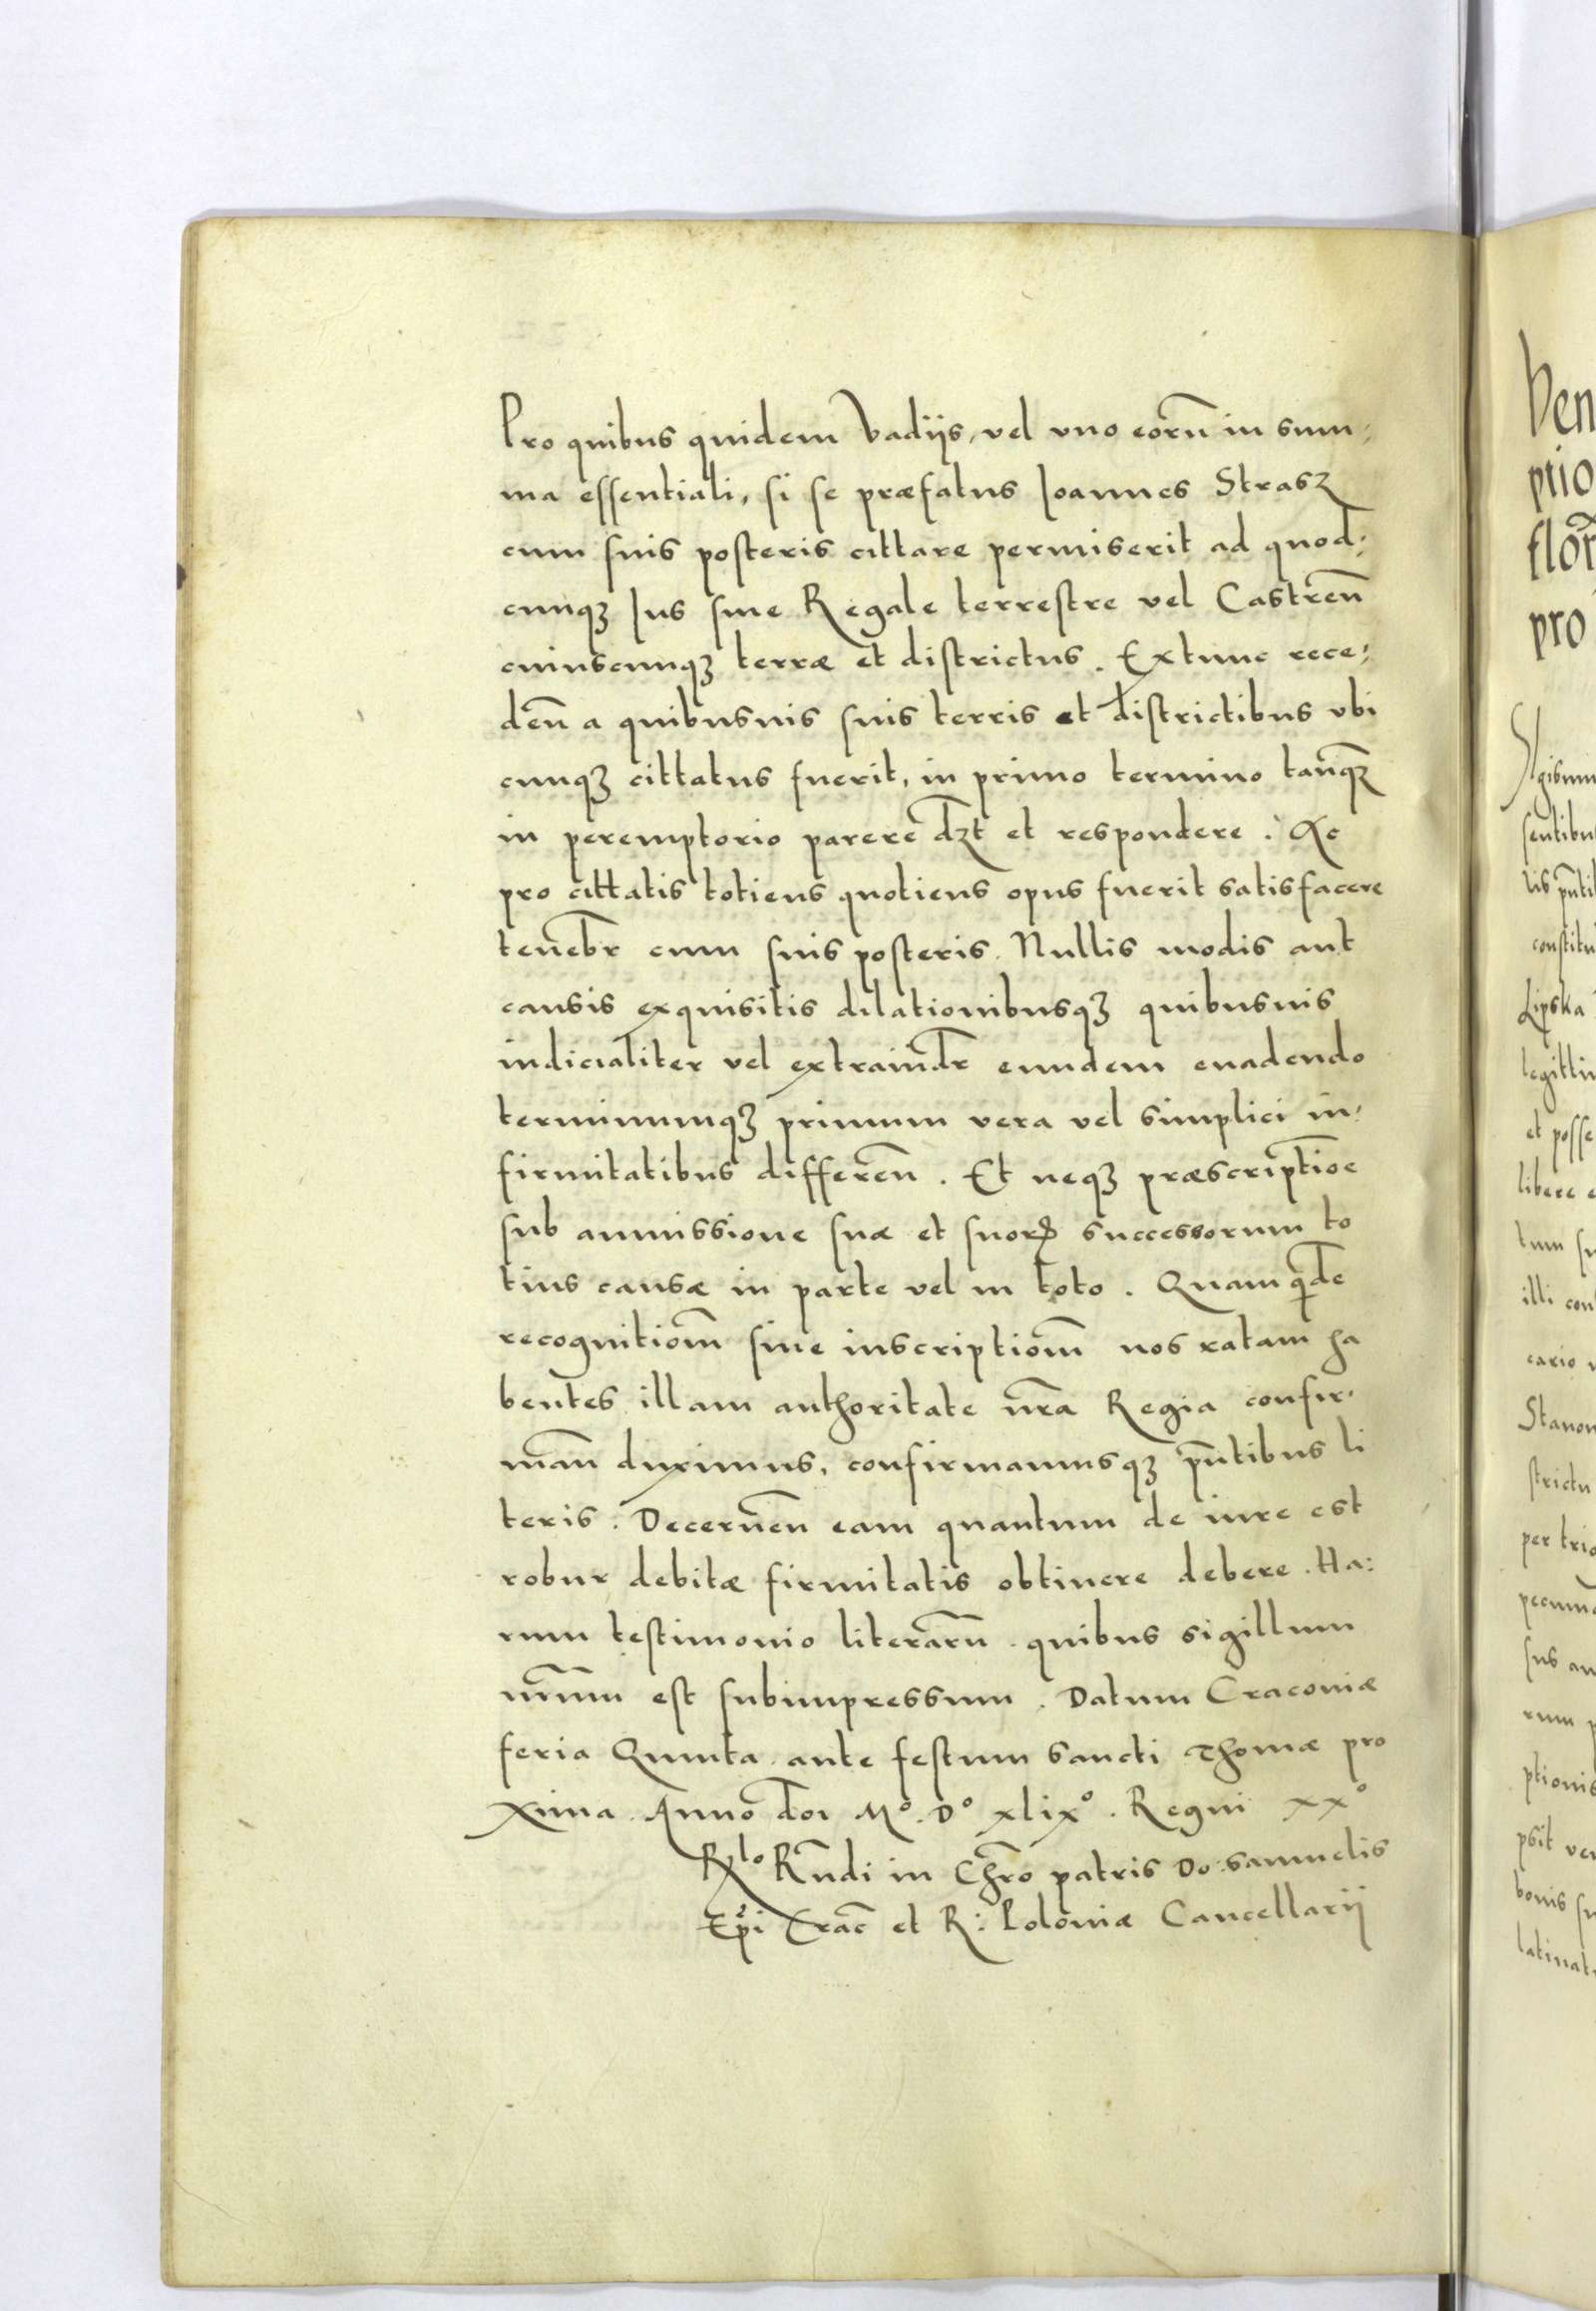 Pro quibus quidem Vadijs, vel vno eorū in sum:
ma essentiali, si se præfatus Ioannes Strasz
cum suis posteris cittare permiserit ad quod:
cunqꝫ Ius siue Regale terrestre vel Castren̄
cuiuscunqꝫ terræ et districtus. Extunc rece:
den̄ a quibusuis suis terris et districtibus vbi
cunqꝫ cittatus fuerit, in primo termino tanqꝫ
in peremptorio parere dꝫt et respondere. Ac
pro cittatis totiens quotiens opus fuerit satisfacere
teneb̄r cum suis posteris. Nullis modis aut
causis exquisitis dilationibusqꝫ quibusuis
iudicialiter vel extraiud̄r eundem euadendo
terminumqꝫ primum vera vel simplici in:
firmitatibus differen̄. Et neqꝫ præscriptio̅e
sub ammissione suæ et suorꝝ successorum to
tius causæ in parte vel in toto. Quam qͥde
recognitiom̄ siue inscriptiom̄ nos ratam ha
bentes illam authoritate nr̄a Regia confir:
man̄ duximus, confirmamusqꝫ pn̄tibus li
teris. Decernen̄ eam quantum de iure est
robur debitæ firmitatis obtinere debere. Ha:
rum testimonio literarū. quibus sigillum
nr̄um est subimpressum. Datum Cracouiæ
feria Quinta ante festum sancti Thomæ pro
xima. Anno doī Mº. Dº xlixº. Regni xxº
Rˡᵒ Rn̄di in Chr̄o patris Do: Samuelis
Ep̄i Crac̄ et R: Poloniæ Cancellarij
Ven
ptio
flor̄
pro
sentibu
lis pn̄ti
constitu
Lipska
legittim
et posse
libere e
tum su
illi con
cario
Stanon
strictu
per trio
pecunia
sus au
rum p
ptionis
psit ver
bonis su
latinat